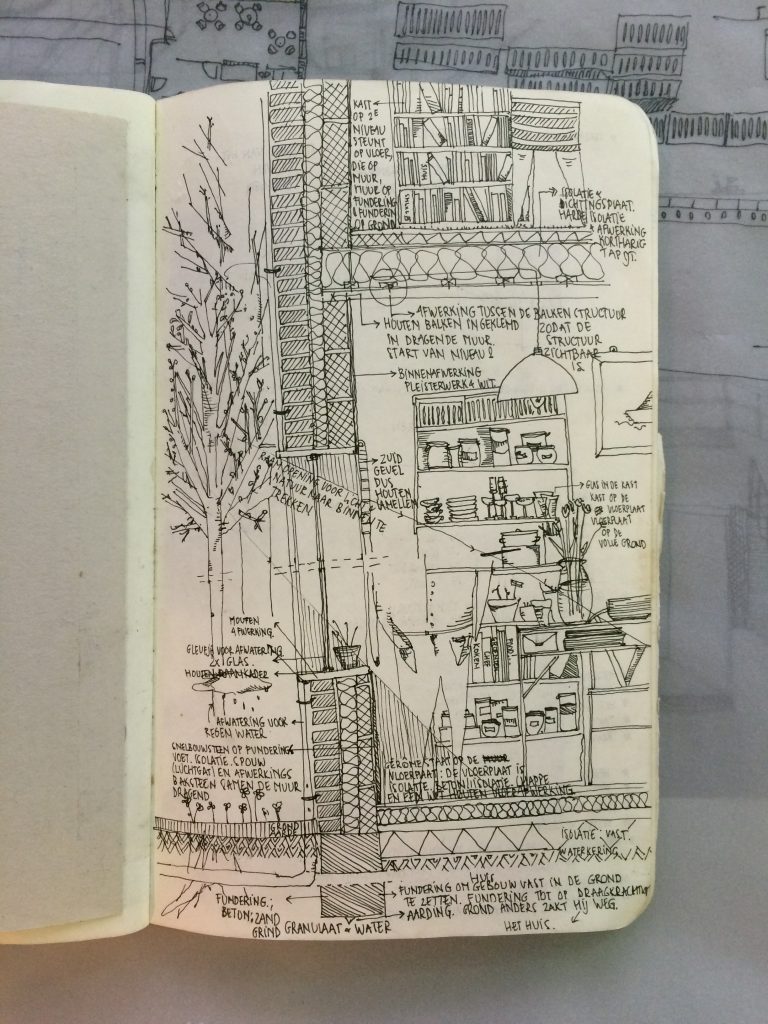 KAST
OP 2E
NIVEAU
STEUNT
OP VLOER,
DIE OP
MUUR,
MUUR OP
FUNDERING
& FUNDERING
OP GROND
HUIS
ISOLATIE &
DICHTINGSPLAAT.
HARDE ISOLATIE
& AFWERKING
KORTHARIG
TAPIJT.
AFWERKING TUSSEN DE BALKEN STRUCTUUR
ZODAT DE
STRUCTUUR
ZICHTBAAR
IS.
HOUTEN BALKEN INGEKLEMD
IN DRAGENDE MUUR.
START VAN NIVEAU 2
BINNENAFWERKING
PLEISTERWERK & WIT.
ZUID
GEVEL
DUS
HOUTEN
LAMELLEN
RAAMOPENING VOOR LICHT &
NATUUR NAAR BINNEN TE
TREKKEN
GLAS IN DE KAST
KAST OP DE
VLOERPLAAT
VLOERPLAAT
OP DE
VOLLE GROND
HOUTEN
AFWERKING.
GLEUFJE VOOR AFWATERING
2X GLAS.
HOUTEN RAAMKADER
AFWATERING VOOR
REGEN WATER
KOKEN
SNELBOUWSTEEN OP FUNDERINGS
VOET. ISOLATIE. SPOUW
(LUCHTGAT) EN AFWERKINGS
BAKSTEEN SAMEN DE MUUR
DRAGEND
GERÖME STAAT OP DE MUUR
VLOERPLAAT: DE VLOERPLAAT IS
ISOLATIE, BETON, ISOLATIE, CHAPPE
EN EEN WIT HOUTEN VLOERAFWERKING
GROND
ISOLATIE: VAST.
WATERKERING
HUIS
FUNDERING OM GEBOUW VAST IN DE GROND
TE ZETTEN. FUNDERING TOT OP DRAAGKRACHTIGE
AARDING. GROND ANDERS ZAKT HIJ WEG.
HET HUIS.
FUNDERING:
BETON: ZAND
GRIND GRANULAAT & WATER